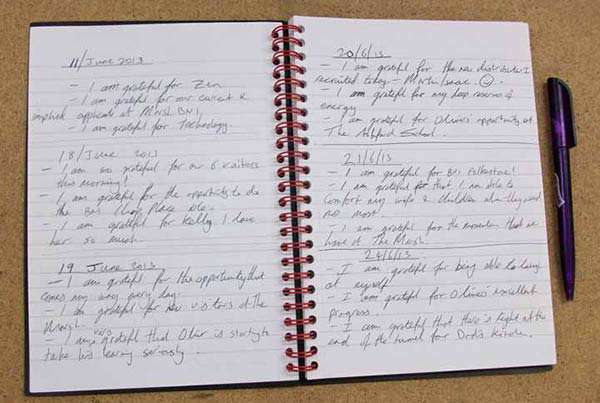 11/June 2013
- I am grateful for Zen
- I am grateful for our current &
applicants at Marsh BNI
- I am grateful for Technology
18/June 2013
- I am so grateful for our 6 visitors
this morning!
- I am grateful for the opportunity to do
the BNI Work Place
- I am grateful for Kelly I love
her so much.
19 June 2013
- I am grateful for the opportunity that
comes my way every day.
- I am grateful for new visitors at The
Marsh
- I am very grateful that Oliver is starting to
take his learning seriously.
20/6/13
- I am grateful for the new distributor I
recruited today - Martin
- I am grateful for my deep reserves of
energy
- I am grateful for Olivers' opportunity at
The Ashford School.
21/6/13
- I am grateful for BNI Folkestone!
- I am grateful for that I am able to
comfort my wife & children when they need
me most.
- I am grateful for the momentum that we
have at The Marsh.
24/6/13
- I am grateful for being able to laugh
at myself
- I am grateful for Olivers' excellent
progress.
- I am grateful that there's light at the
end of the tunnel for Kitchen.